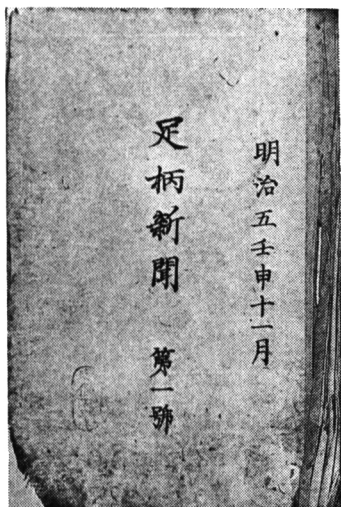 明治五壬申十一月
足柄新聞 第一號